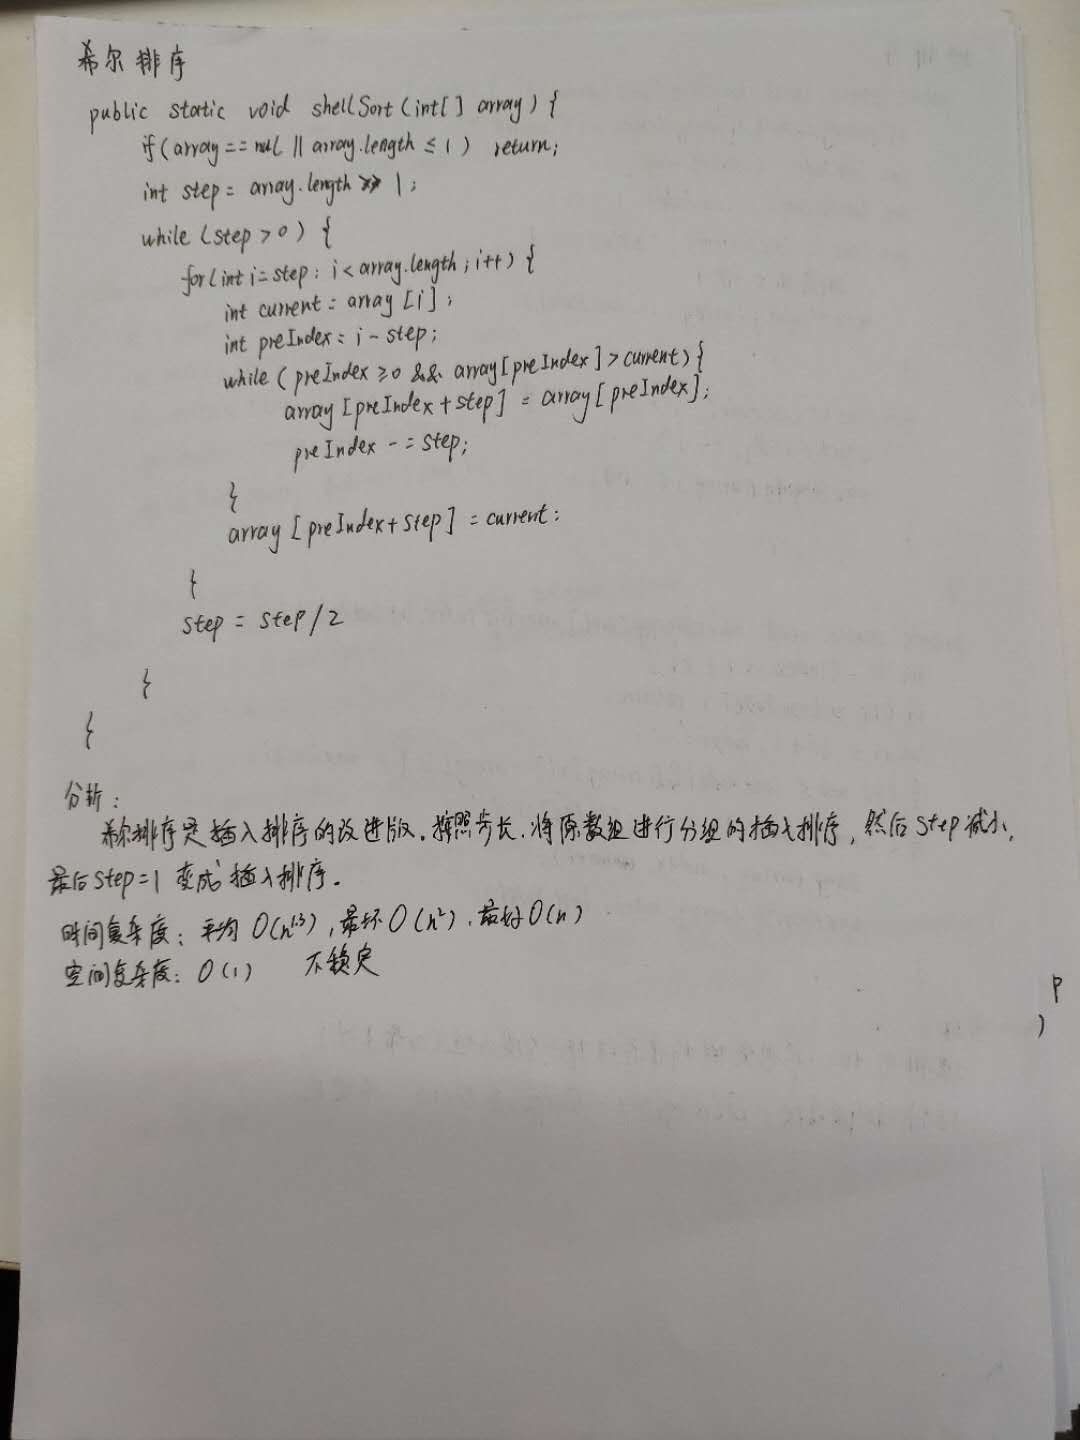 希尔排序
public static void shellSort (int[] array) {
if (array == null || array.length ≤ 1) return;
int step = array.length >> 1;
while (step > 0) {
for (int i = step; i < array.length; i++) {
int current = array [i];
int preIndex = i - step;
while (preIndex ≥ 0 && array[preIndex] > current) {
array [preIndex + step] = array [preIndex];
preIndex -= step;
}
array [preIndex + step] = current;
}
step = step / 2
}
}
分析:
希尔排序是插入排序的改进版. 按照步长. 将原数组进行分组的插入排序, 然后 step 减小,
最后 step = 1 变成插入排序.
时间复杂度: 平均 O(n^1.3), 最坏 O(n²), 最好 O(n)
空间复杂度: O(1) 不稳定
P
)